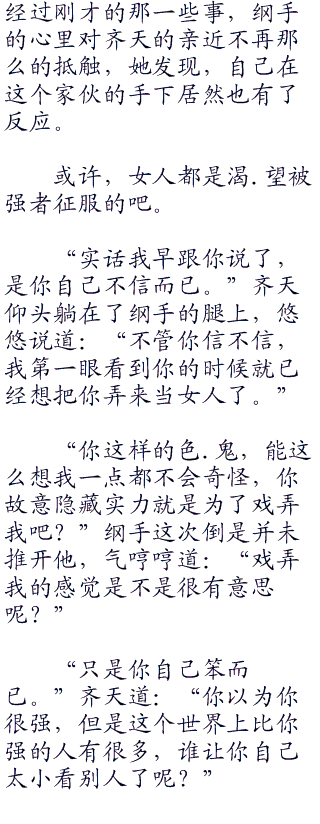 经过刚才的那一些事，纲手
的心里对齐天的亲近不再那
么的抵触，她发现，自己在
这个家伙的手下居然也有了
反应。
或许，女人都是渴.望被
强者征服的吧。
“实话我早跟你说了，
是你自己不信而已。”齐天
仰头躺在了纲手的腿上，悠
悠说道：“不管你信不信，
我第一眼看到你的时候就已
经想把你弄来当女人了。”
“你这样的色.鬼，能这
么想我一点都不会奇怪，你
故意隐藏实力就是为了戏弄
我吧？”纲手这次倒是并未
推开他，气哼哼道：“戏弄
我的感觉是不是很有意思
呢？”
“只是你自己笨而
已。”齐天道：“你以为你
很强，但是这个世界上比你
强的人有很多，谁让你自己
太小看别人了呢？”